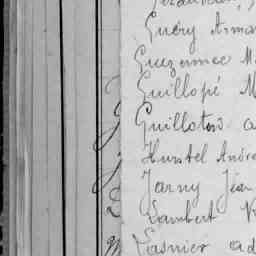 Guéry Arma
Guezennec M
Guillopé M
Guilloton a
Hurstel André
Jarny Jean
Lambert V
Lasnier ad